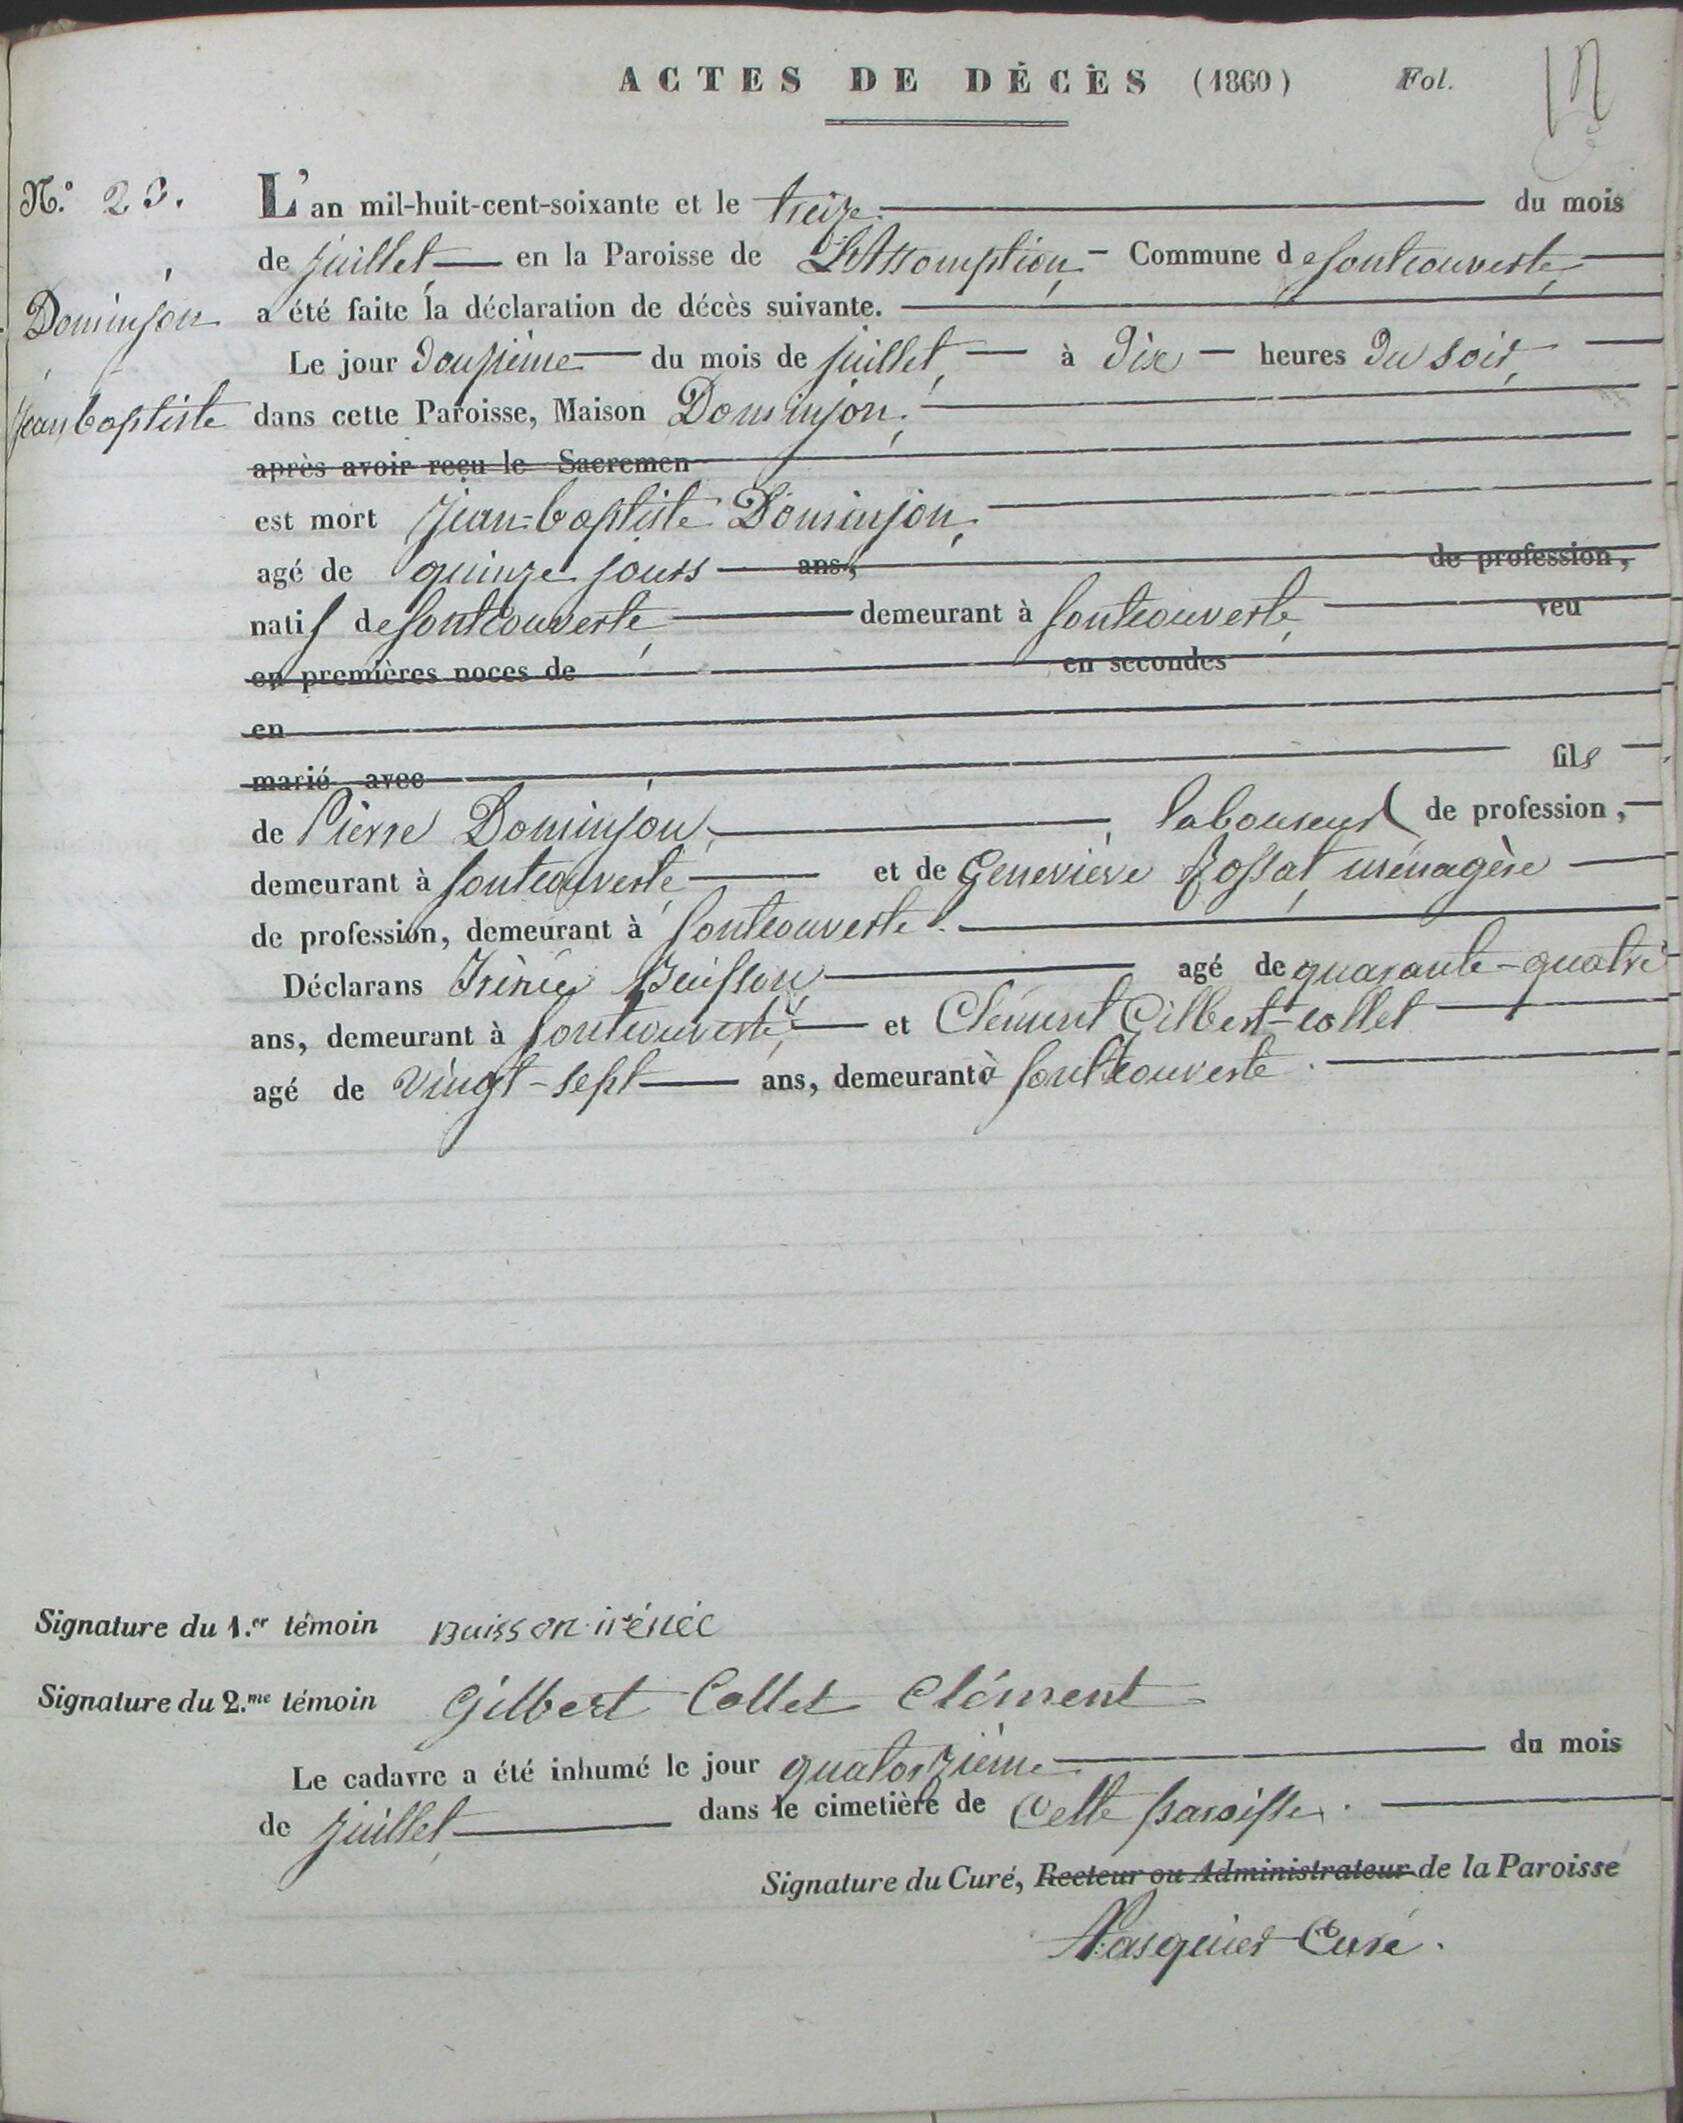 ACTES DE DÉCÈS (1860) Fol. 12
N.º 23. L'an mil-huit-cent-soixante et le treize du mois
de juillet, en la Paroisse de L'Assomption, Commune de fontcouverte,
Dominjon a été faite la déclaration de décès suivante.
Le jour douzième du mois de juillet, à dix heures du soir,
Jean baptiste dans cette Paroisse, Maison Dominjon,
après avoir reçu le Sacremen
est mort Jean-baptiste Dominjon,
agé de quinze jours ans, de profession,
natif de fontcouverte, demeurant à fontcouverte, veu
en premières noces de en secondes
en
marié avec fils
de Pierre Dominjon, laboureur de profession,
demeurant à fontcouverte, et de Geneviève Rossat, ménagère
de profession, demeurant à fontcouverte.
Déclarans Irénée Buisson agé de quarante-quatre
ans, demeurant à fontcouverte, et Clément Gilbert-collet
agé de vingt-sept ans, demeurant à fontcouverte.
Signature du 1.er témoin Buisson irénée
Signature du 2.me témoin Gilbert Collet Clément
Le cadavre a été inhumé le jour quatorzième du mois
de juillet, dans le cimetière de cette paroisse.
Signature du Curé, Recteur ou Administrateur de la Paroisse
Pasquier Curé.